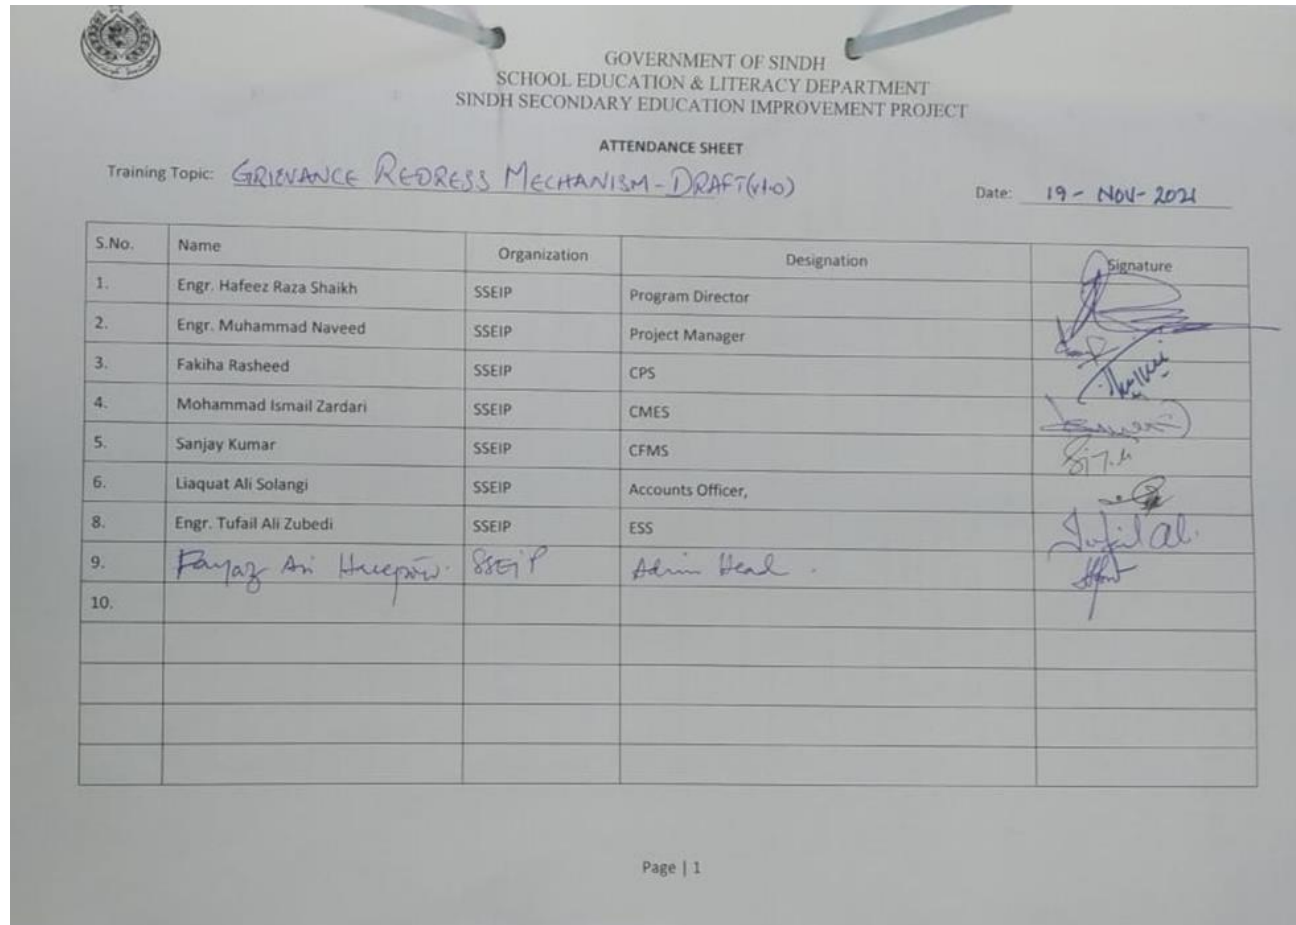 GOVERNMENT OF SINDH
SCHOOL EDUCATION & LITERACY DEPARTMENT
SINDH SECONDARY EDUCATION IMPROVEMENT PROJECT
ATTENDANCE SHEET
Training Topic: GRIEVANCE REDRESS MECHANISM - DRAFT(v1.0)
Date: 19 - NOV - 2021
S.No. Name Organization Designation Signature
1. Engr. Hafeez Raza Shaikh SSEIP Program Director
2. Engr. Muhammad Naveed SSEIP Project Manager
3. Fakiha Rasheed SSEIP CPS
4. Mohammad Ismail Zardari SSEIP CMES
5. Sanjay Kumar SSEIP CFMS
6. Liaquat Ali Solangi SSEIP Accounts Officer,
8. Engr. Tufail Ali Zubedi SSEIP ESS Tufail Al.
9. Fayaz SSEIP Admin Head .
10.
Page | 1